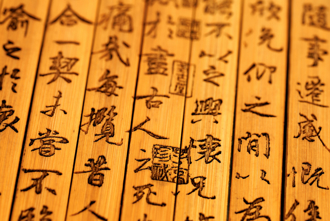 隨事遷感慨
欣俛仰之間以為
不以之興懷況
盡古人云死
痛哉每攬昔人
合一契未嘗不
之於懷